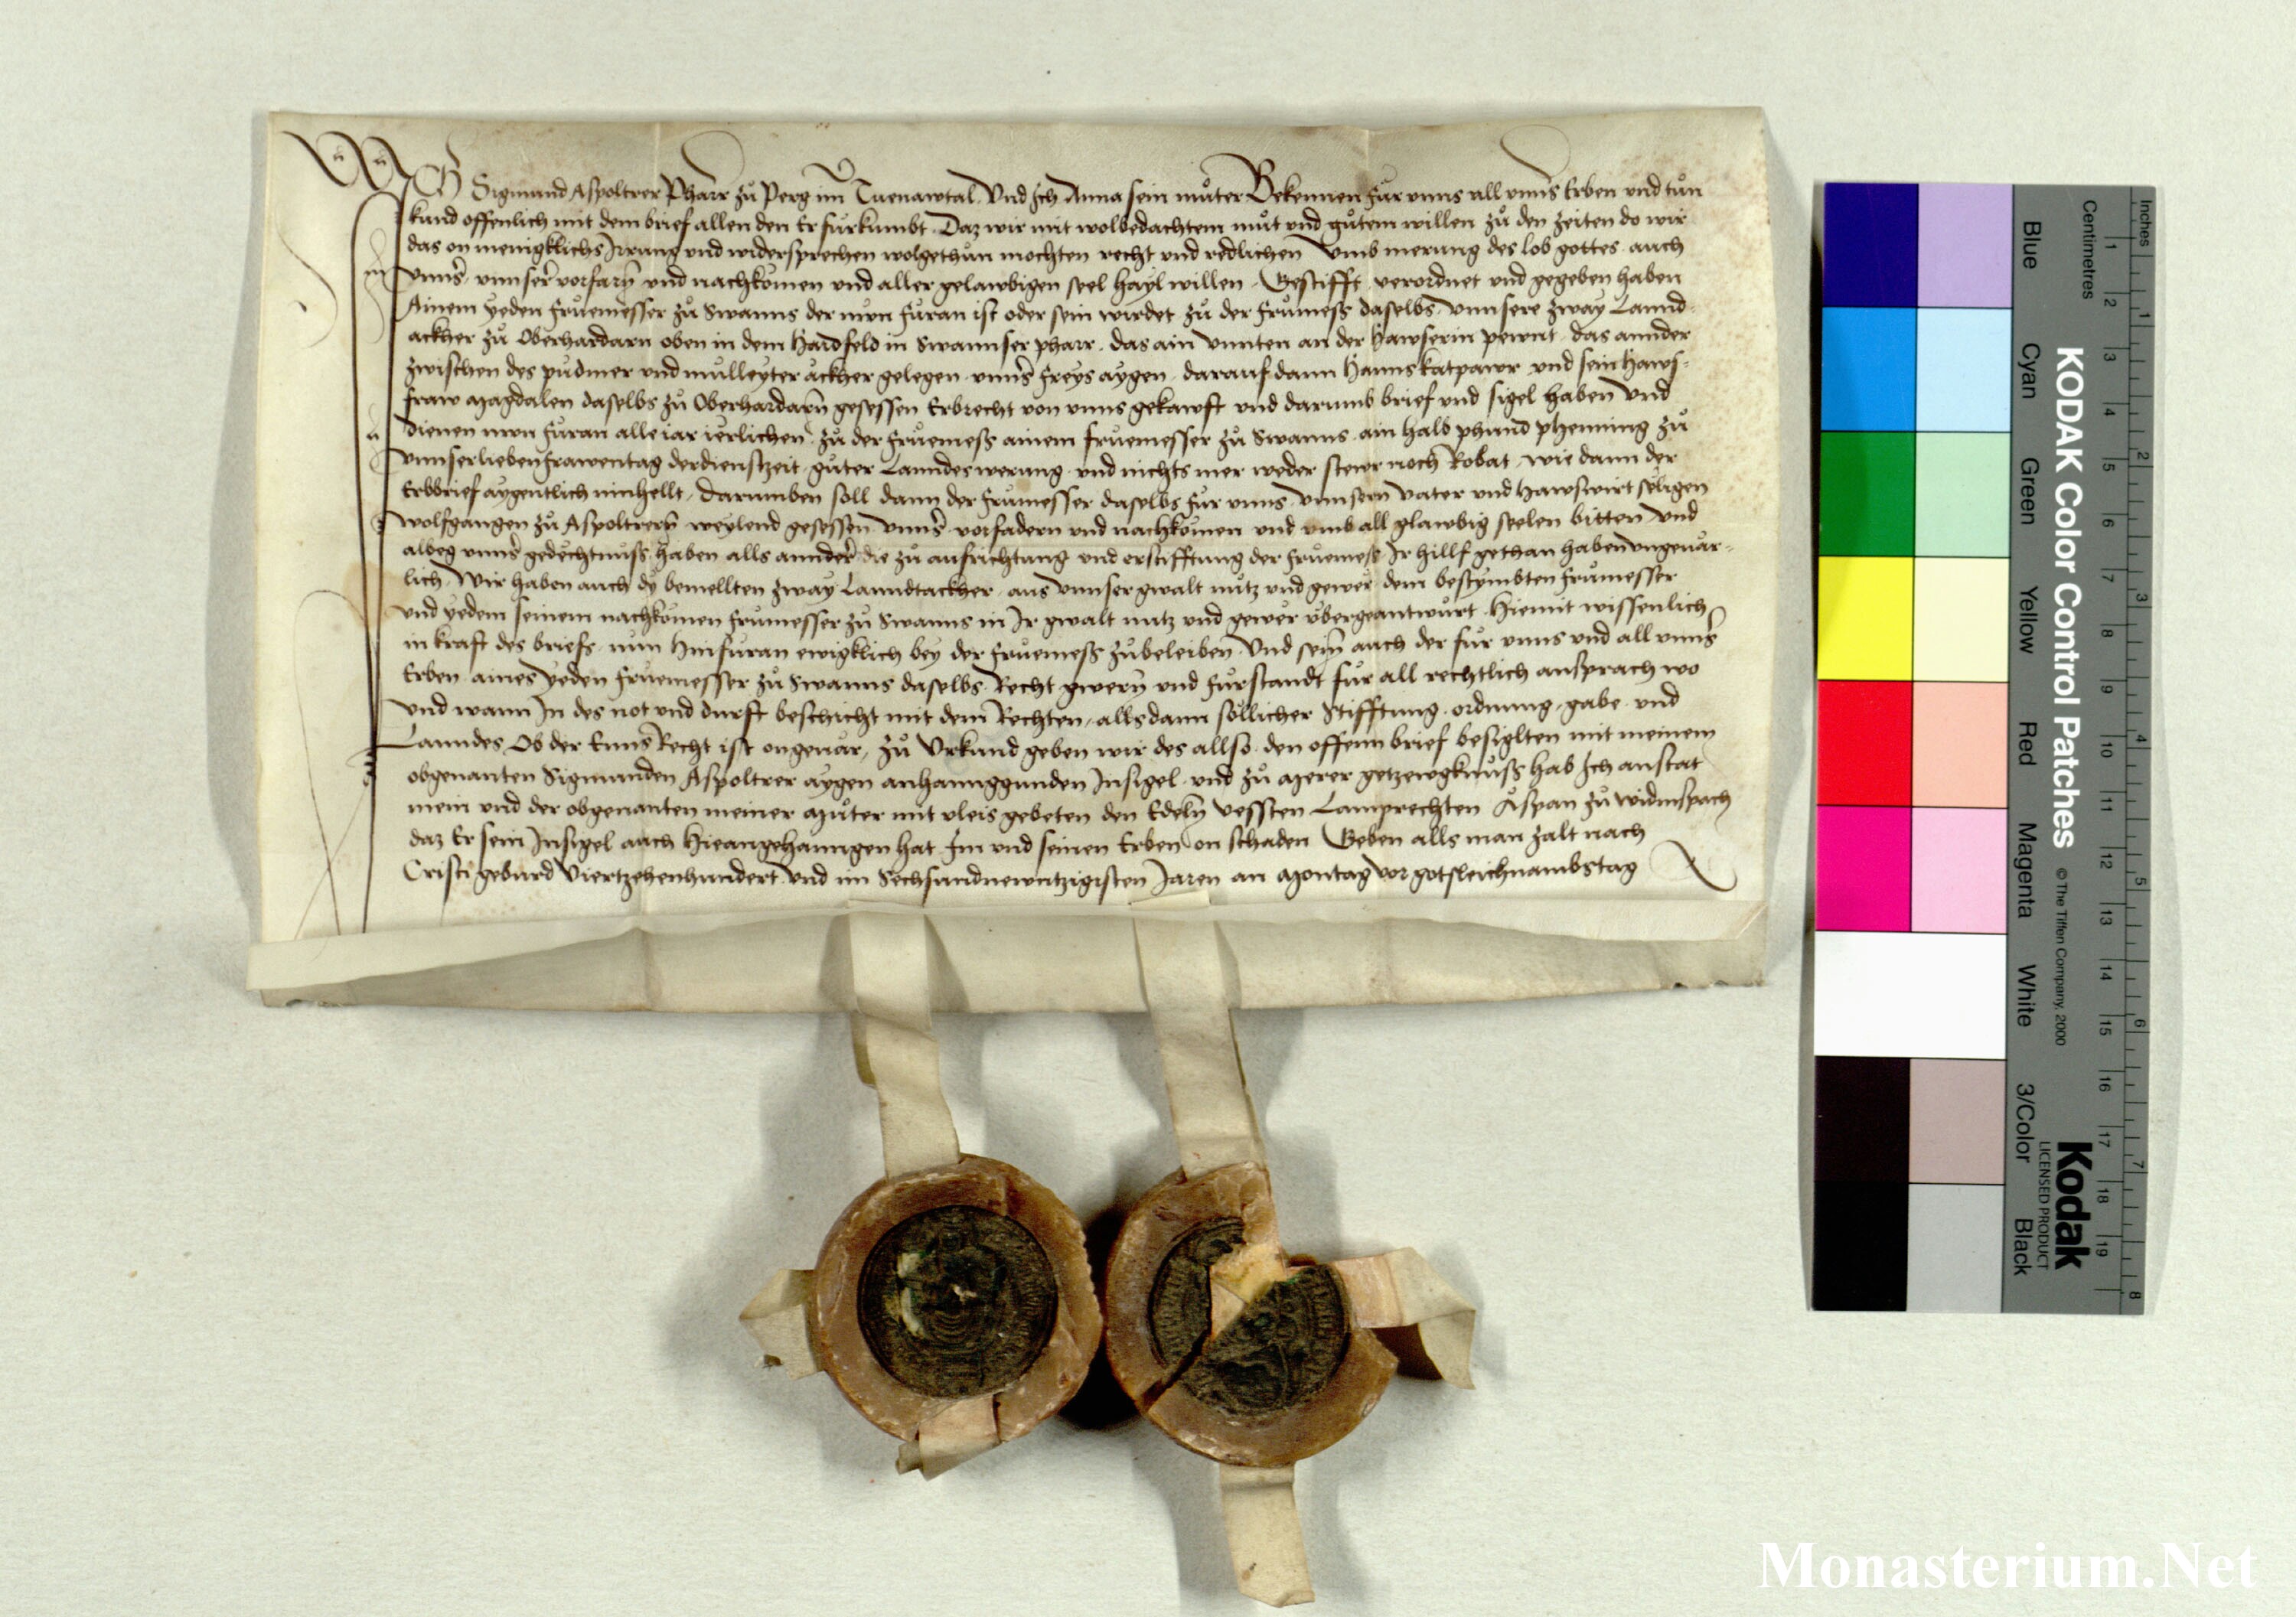 Ich Sigmund Aspoltrer Pharrˀ zů Perg im Traenawtal Vnd Ich Anna sein můter Bekennen fur vnns all vnnsˀ Erben vnd tůn
kund offenlich mit dem brief allen den Er furkumbt. Daz wir mit wolbedachtem můt vnd gůtem willen zů den zeiten do wir
das on menigklichs Irrung vnd widersprechen wolgethůn mochten recht vnd redlichen Vmb merung des lob gottes auch
vnnsˀ vnnserˀ vorfarn̄ vnd nachkomen vnd aller gelawbigen seel hayl willen. Gestifft verordnet vnd gegeben haben
Ainem yeden frůemesser zů Swanns der nwn fůran ist oder sein wirdet zů der frůmess daselbs. vnnsere zway Lannd-
ackher zů Oberhardarn oben in dem Hardfeld in Swannser pharr. das ain vnnten an der Hawserin pewnt das annder
zwischen des pudmer vnd mulleyter äckher gelegen vnnsˀ freys aygen darauf dann Hanns katpawr vnd sein haws-
fraw Magdalen daselbs zů Oberhardarn̄ gesessen Erbrecht von vnns gekawft vnd darumb brief vnd sigel haben Vnd
dienen nwn fůran alle iar ierlichen zů der frůemess ainem frůemesser zů Swanns ain halb phund phenning zů
vnnserliebenfrawentag derdienstzeit gůter Lanndeswerung vnd nichts mer weder stewr noch Robat wie dann der
Erbbrief aygentlich innhellt. Darumben soll dann der frůmesser daselbs fur vnns vnnsern vater vnd hawswirt seligen
Wolfgangen zů Aspoltrern̄ weylend gesessen vnnsˀ vorfadern vnd nachkomen vnd vmb all glawbig seelen bitten vnd
albeg vnnsˀ gedechtnůss haben alls annderˀ die zů aufrichtung vnd erstifftung der frůemess Ir hillf gethan haben vngeuar-
lich. Wir haben auch dy bemellten zway Lanndtackher aus vnnser gwalt nůtz vnd gewer dem bestymbten frůmesser
vnd yedem seinem nachkomen frůmesser zů Swanns in Ir gwalt nutz vnd gewer ubergeantwůrt. Hiemit wissenlich
in kraft des briefs nun hinfuran ewigklich bey der frůemess zůbeleiben. Vnd sein auch der fůr vnns vnd all vnnsˀ
Erben aines yeden frůemesser zů Swanns daselbs Recht gwern̄ vnd fůrstandt fůr all rechtlich ansprach wo
vnd wann In des not vnd durft beschicht mit dem Rechten allsdann sollicher Stifftung ordnung gabe vnd
Lanndes Ob der Ennsˀ Recht ist ongeuar. zů Vrkund geben wir des allso den offenn brief besiglten mit meinem
obgenanten Sigmunden Aspoltrer aygen anhannggunden Insigel vnd zů Merer getzewgknuss hab Ich anstat
mein vnd der obgenanten meiner Můter mit vleis gebeten den Edeln̄ vessten Lamprechten Aspan zů Widmspach
daz Er sein Insigel auch Hieangehanngen hat Im vnd seinen Erben on schaden Geben alls man zalt nach
Cristi geburd Viertzehenhundert vnd im Sechsundnewntzigisten Jaren an Montag vor gotsleichnambstag
Inches
Centimetres
1 2 3 4 5 6 7 8 9 10 11 12 13 14 15 16 17 18 19
1 2 3 4 5 6 7 8
Blue Cyan Green Yellow Red Magenta White 3/Color Black
KODAK Color Control Patches
© The Tiffen Company, 2000
Kodak
LICENSED PRODUCT
Monasterium.Net